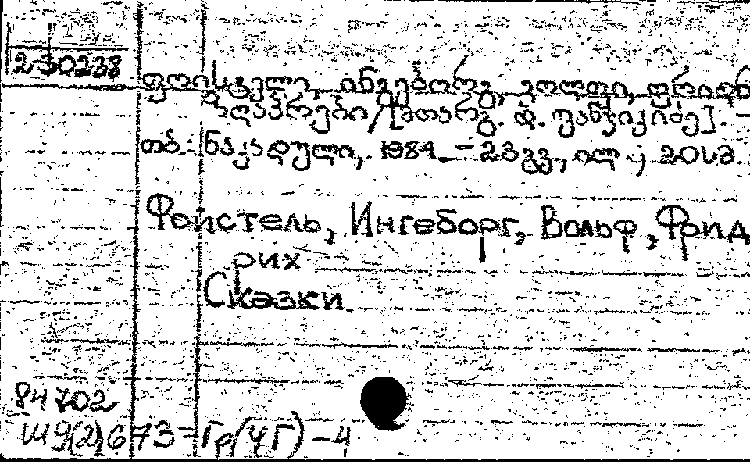 2-30238
ფოისტელი, ინგებორგ, ვოლფი, ფრიდრ
ზღაპრები/[მთარგ. დ. ფანჯიკიძე]. -
თბ.: ნაკადული, 1984. - 23გვ., ილ.; 20სმ.
Фойстель, Ингеборг, Вольф, Фрид
рих
Сказки.
84 702
Ш9(2)673 - Гр(4Г) - 4